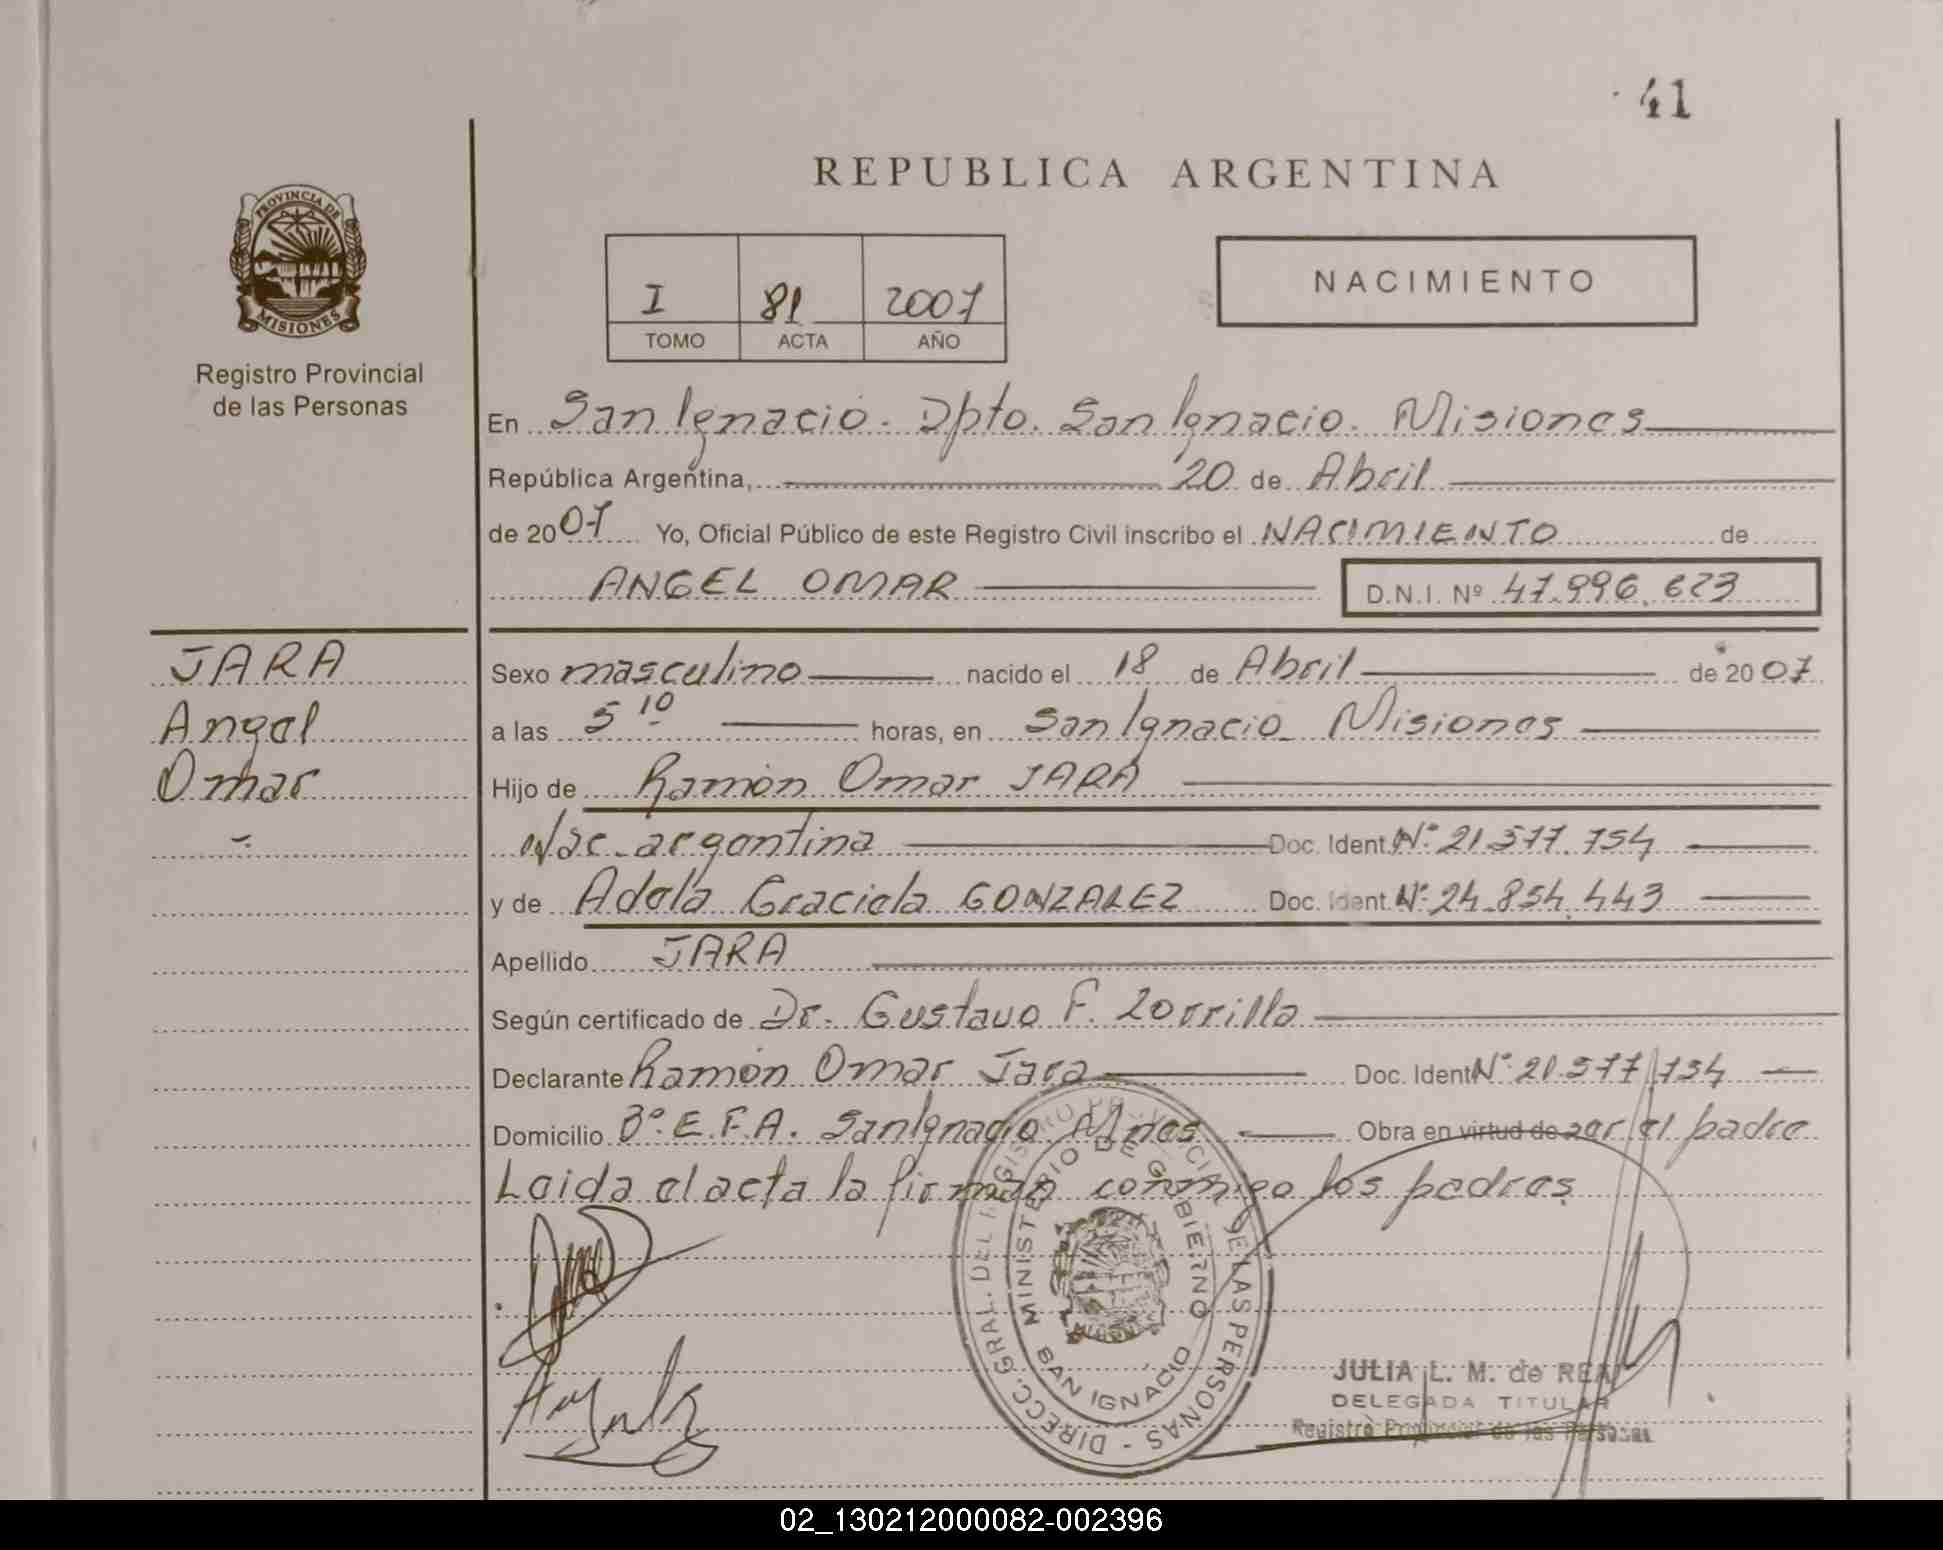 41
REPUBLICA ARGENTINA
PROVINCIA DE
MISIONES
Registro Provincial
de las Personas
I 81 2007
TOMO ACTA AÑO
NACIMIENTO
En San Ignacio. Dpto. San Ignacio. Misiones
República Argentina, 20 de Abril
de 2007 Yo, Oficial Público de este Registro Civil inscribo el NACIMIENTO de
ANGEL OMAR D.N.I. Nº 47.996.623
JARA
Angel
Omar
Sexo masculino nacido el 18 de Abril de 2007
a las 5 10 horas, en San Ignacio Misiones
Hijo de Ramón Omar JARA
Nac. argentina Doc. Ident. Nº 21.577.754
y de Adela Graciela GONZALEZ Doc. Ident. Nº 24.854.443
Apellido JARA
Según certificado de Dr. Gustavo F. Zorrilla
Declarante Ramón Omar Jara Doc. Ident Nº 21.577.754
Domicilio Bº. E.F.A. San Ignacio Mnes Obra en virtud de ser el padre
Leida el acta la firman conmigo los padres
DIRECC. GRAL. DEL REGISTRO PROVINCIAL DE LAS PERSONAS -
MINISTERIO DE GOBIERNO
MISIONES
SAN IGNACIO
JULIA L. M. de REA
DELEGADA TITULAR
Registro Provincial de las Personas
02_130212000082-002396